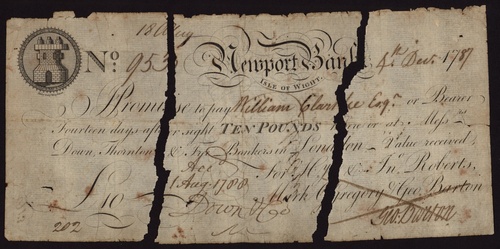 18 Aug
No. 953 Newport Bank 4th Decr. 1787
ISLE OF WIGHT.
I Promise to pay William Clarke Esqr. or Bearer
Fourteen days after sight TEN POUNDS here or at Messrs
Down, Thornton & Bankers in London Value received
For H. J. & Jno. Roberts,
Acc
1 Aug 1788
Mark Gregory & Geo. Burton
£10
Down &
Geo. Burton
202